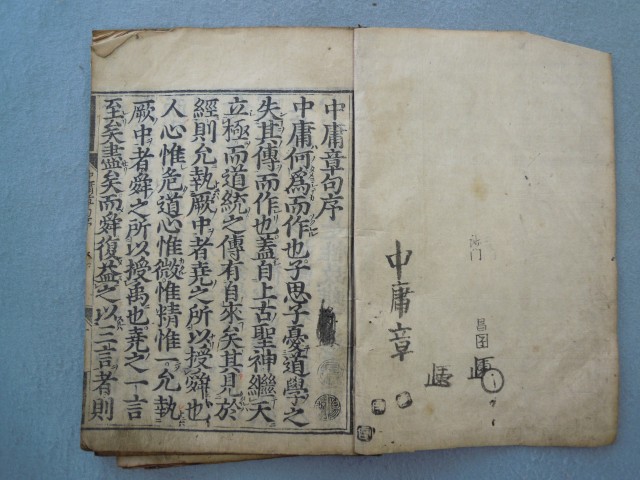 中庸章
中庸章句序
中庸何爲而作也子思子憂道學之
失其傳而作也蓋自上古聖神繼天
立極而道統之傳有自來矣其見於
經則允執厥中者堯之所以授舜也
人心惟危道心惟微惟精惟一允執
厥中者舜之所以授禹也堯之一言
至矣盡矣而舜復益之以三言者則